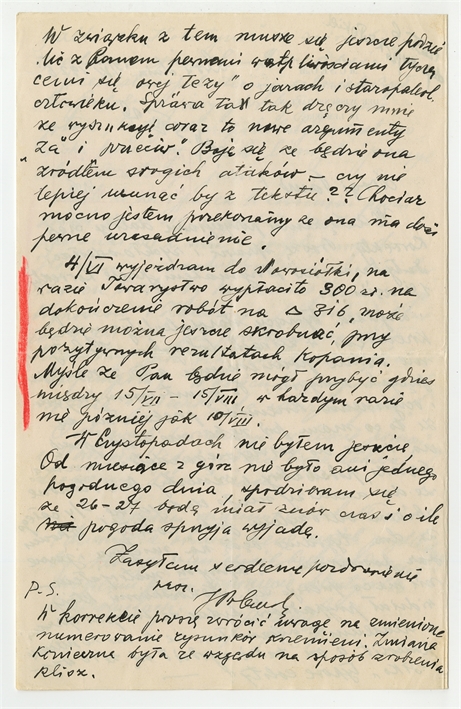 W związku z tem muszę się jeszcze podzie
lić z Panem pewnemi wątpliwościami tyczą
cemi się owej tezy" o jarach i staropaleol.
człowieku. Sprawa ta tak dręczy mnie
że wyszukuję coraz to nowe argumenty
"za" i przeciw". Boję się że będzie ona
źródłem srogich ataków – czy nie
lepiej usunąć by z tekstu?? Chociaż
mocno jestem przekonany że ona ma dziś
pewne uzasadnienie.
4/VI wyjeżdżam do Nowosiółki, na
razie Towarzystwo wypłaciło 300 zł. na
dokończenie robót na △ 316, może
będzie można jeszcze skrobnąć, przy
pozytywnych rezultatach kopania.
Myślę że Pan będzie mógł przybyć gdzieś
między 15/VII – 15/VIII w każdym razie
nie później jak 10/VIII.
W Czystopadach nie byłem jeszcze,
Od miesiąca z górą nie było ani jednego
pogodnego dnia, spodziewam się
że 26–27 będę miał znów czas i o ile
pogoda sprzyja wyjadę.
Zasyłam serdeczne pozdrowienie
P.S.
W korrekcie proszę zwrócić uwagę na zmienione
numerowanie rysunków krzemieni. Zmiana
konieczna była ze względu na sposób zrobienia
klisz.